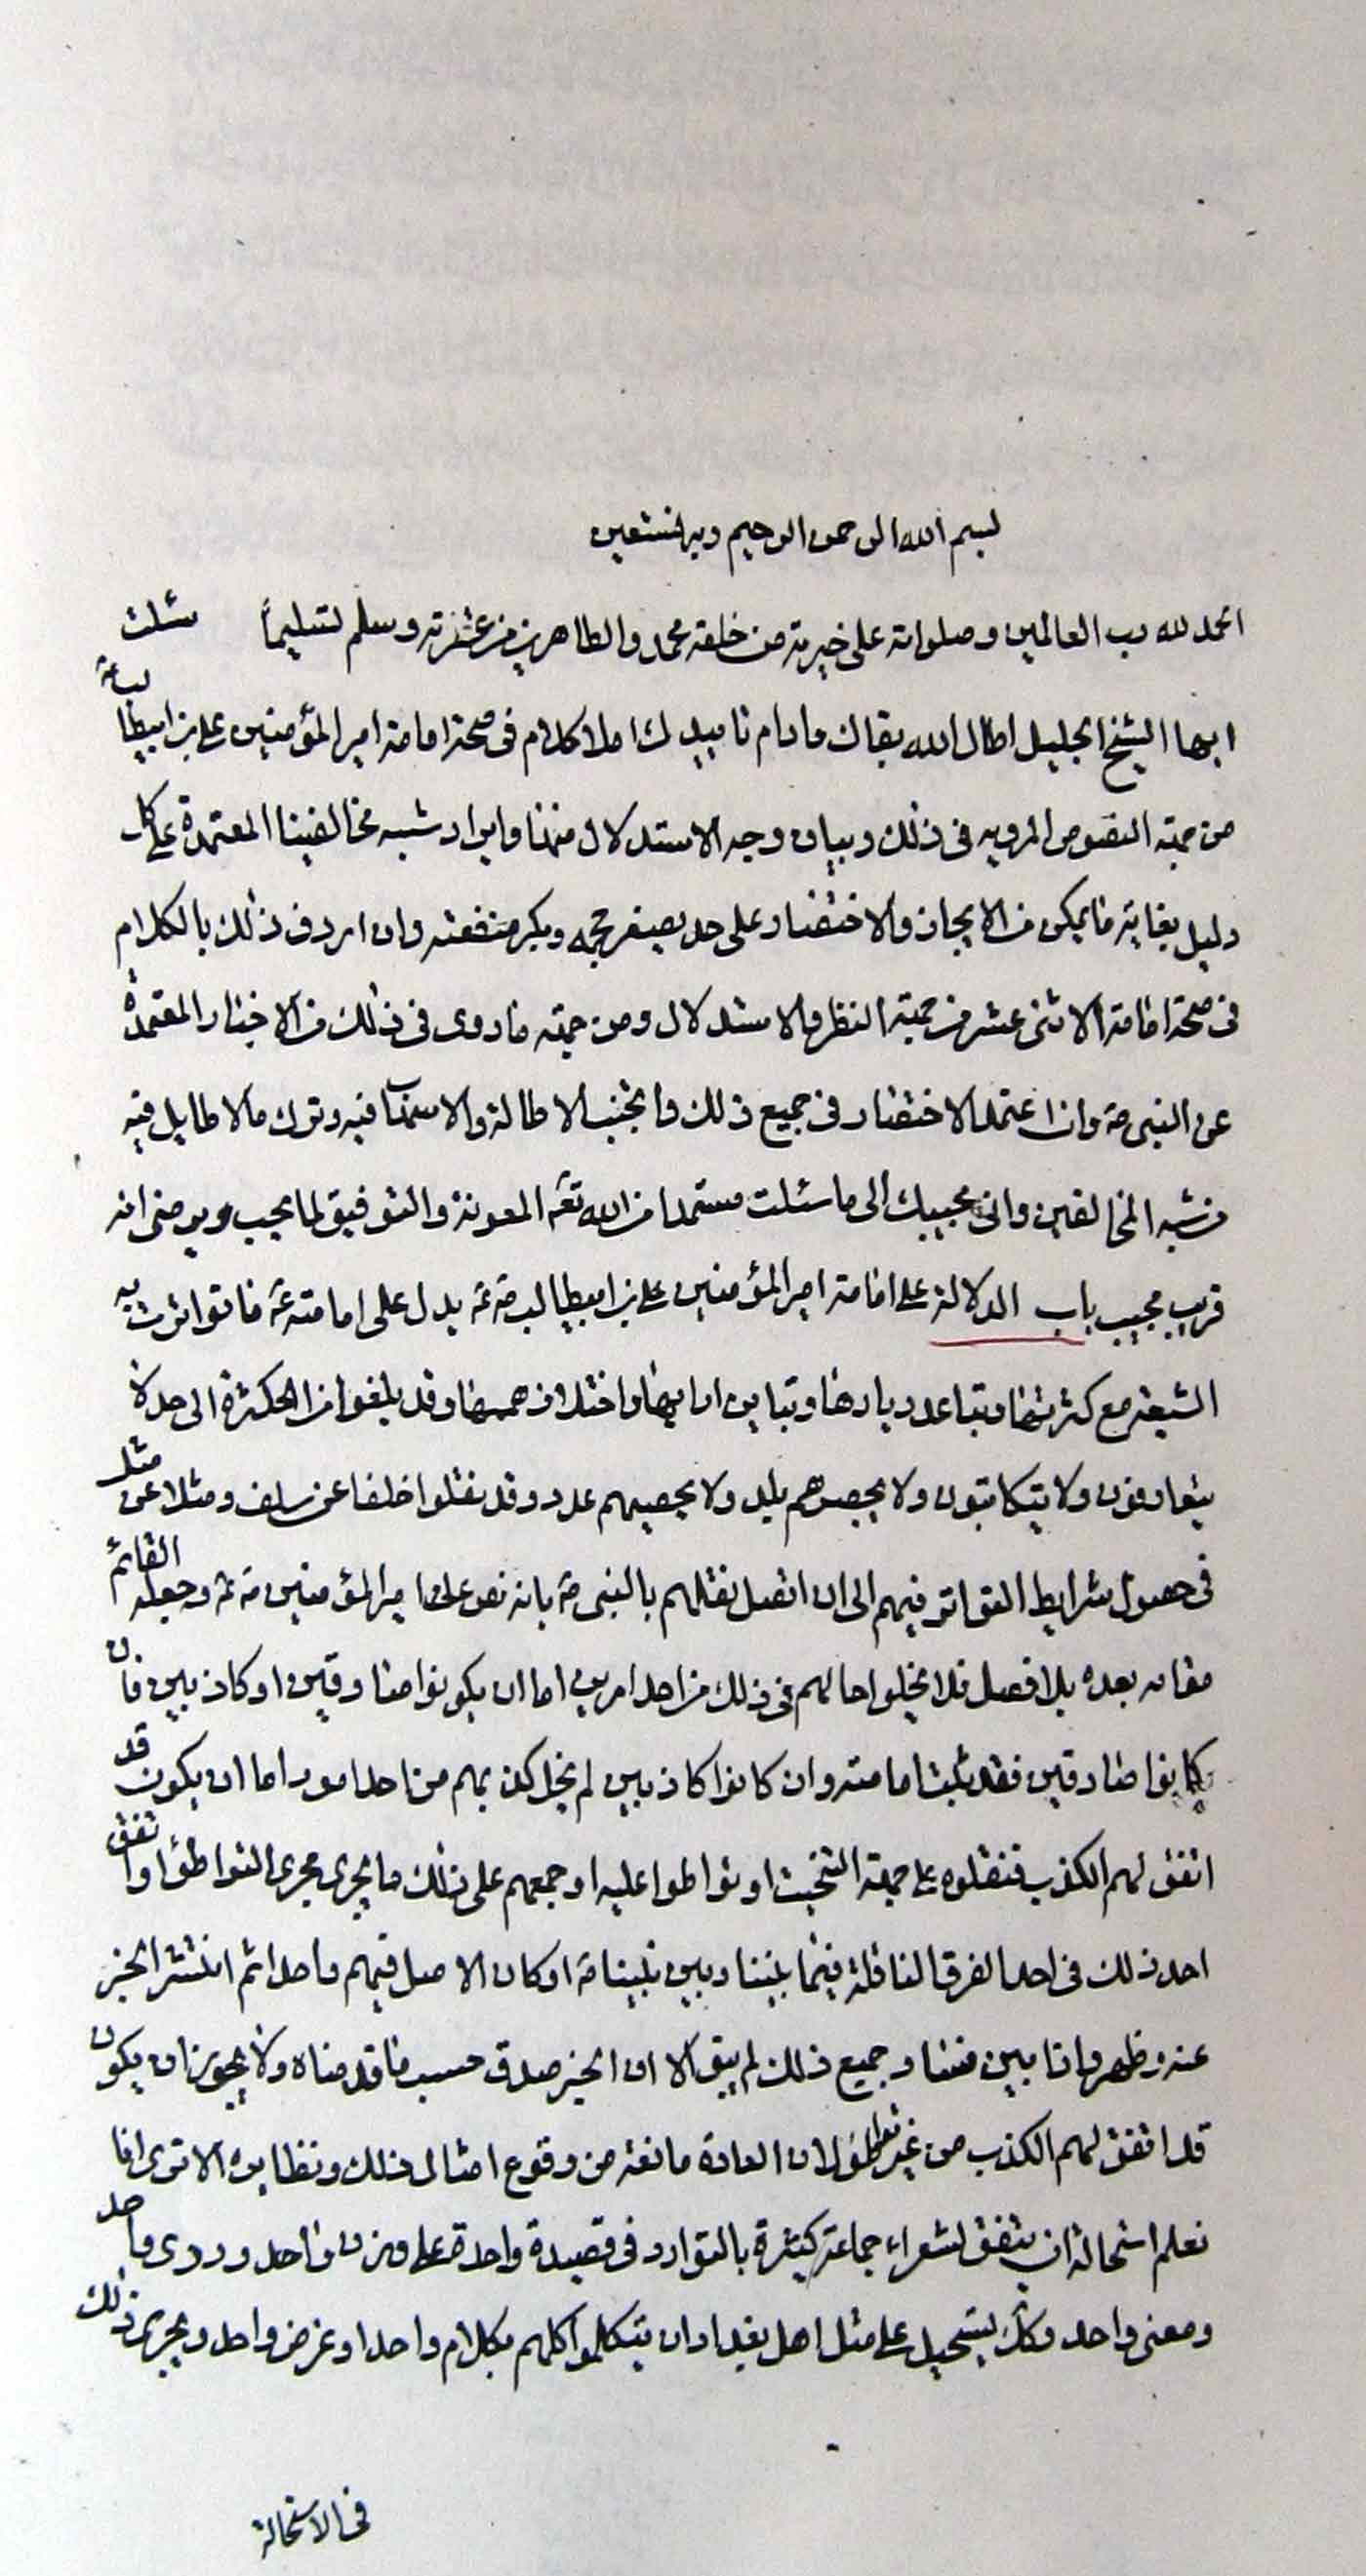 بسم الله الرحمن الرحيم وبه نستعين
الحمد لله رب العالمين وصلواته على خيرته من خلقه محمد والطاهرين من عترته وسلم تسليماً سئلت
ايها الشيخ الجليل اطال الله بقاك وادام تاييدك املا كلام فى صحة امامة امير المؤمنين على بن ابيطالب عم
من جهة النصوص المرويه فى ذلك وبيان وجه الاستدلال منها وايراد شبه مخالفينا المعتمدة على كل
دليل بغاية ما يمكن من الايجاز والاختصار على حد يصغر حجمه ويكبر منفعته وان اردف ذلك بالكلام
فى صحة امامة الاثنى عشر من جهة النظر والاستدلال ومن جهة ما روى فى ذلك من الاخبار المعتمدة
عن النبى ص وان اعتمد الاختصار فى جميع ذلك واتجنب الاطالة والاسهاب فيه وترك ما لا طايل فيه
من شبه المخالفين وانى مجيبك الى ما سئلت مستمدا من الله تعه المعونة والتوفيق لما يحب ويرضى انه
قريب مجيب باب الدلالة على امامة امير المؤمنين على بن ابيطالب ص ع يدل على امامته ع ما تواترت به
الشيعة مع كثرتها وتباعد ديارها وتباين ارائها واختلاف هممها وقد بلغوا من الكثرة الى حد لا
يتعارفون ولا يتكاتبون ولا يحصرهم بلد ولا يحصيهم عدد وقد نقلوا خلفا عن سلف ومثلا عن مثل
فى حصول شرايط التواتر فيهم الى ان اتصل نقلهم بالنبى ص بانه نص على امير المؤمنين ص ع وجعله القائم
مقامه بعده بلا فصل فلا يخلوا حالهم فى ذلك من احد امرين اما ان يكونوا صادقين او كاذبين فان
كانوا صادقين فقد ثبت امامته وان كانوا كاذبين لم يخل كذبهم من احد امور اما ان يكون قد
اتفق لهم الكذب فنقلوه على جهة التبخيت او تواطوا عليه او جمعهم على ذلك ما يجرى مجرى التواطؤ او اتفق
احد ذلك فى احد الفرق الناقلة فيما بيننا وبين نبينا ص او كان الاصل فيهم واحدا ثم انتشر الخبر
عنه وظهر واذا بين فساد جميع ذلك لم يبق الا ان الخبر صدق حسب ما قدمناه ولا يجوز ان يكون
قد اتفق لهم الكذب من غير تواطؤ لان العادة مانعة من وقوع امثال ذلك ونظايره الا ترى انا
نعلم استحالة ان يتفق لشعراء جماعة كثيرة بالتوارد فى قصيدة واحدة على وزن واحد وروى واحد
ومعنى واحد وكك يستحيل على مثل اهل بغداد ان يتكلموا كلهم بكلام واحد او غرض واحد ويجرى ذلك
فى الاستحالة